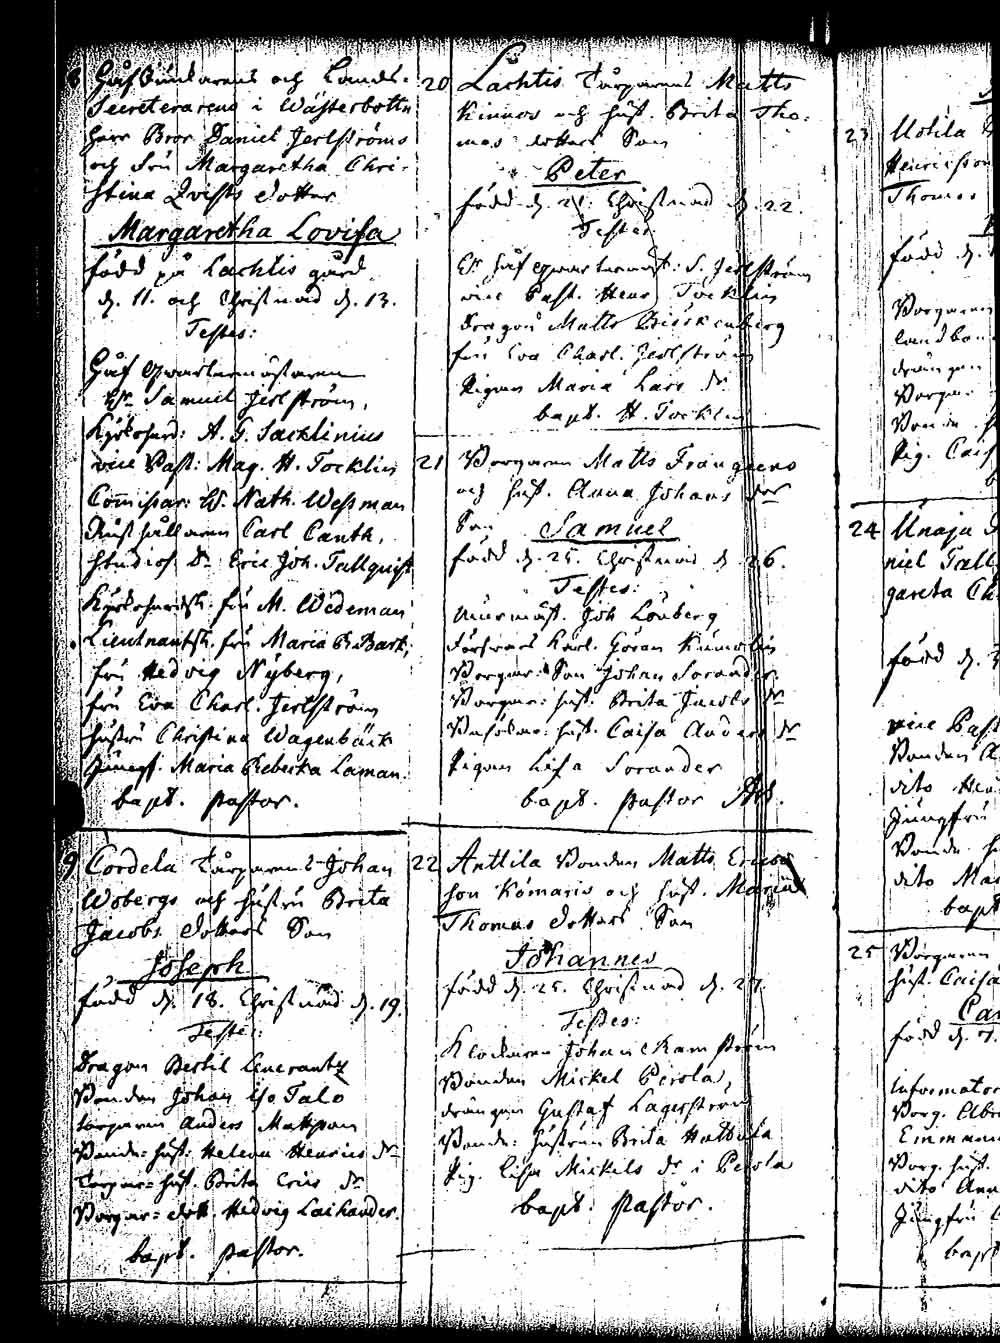 8 Häfdünkarens och Lands-
Secreterarens i Wästerbottn
Herr Bror Daniel Jerlströms
och Fru Margaretha Chri-
stina Qvists dotter
Margaretha Lovisa
född på Lachtis gård
d. 11. och Christnad d. 13.
Testes:
Sr Samuel Jerlström,
Kyrkoherd: A. G. Sacklinius
vice Past: Mag. H. Tocklin
Comissar: W. Nath. Wessman
Rusthållaren Carl Canth,
Studios. Dn Eric Joh. Tallquist
Kyrkoherdsk: fru M. Wedeman
Lieutnantsk. fru Maria R. Bark,
fru Hedvig Nyberg,
fru Eva Charl. Jerlström
hustru Christina Wagenbäck
Jungf. Maria Rebecka Laman.
bapt. pastor.
9 Cordela Torparens Johan
Wobergs och hustru Brita
Jacobs dotters Son
Joseph
född d. 18. Christnad d. 19.
Testes:
Dragon Bertil
Bonden Johan Iso Talo
torparen Anders Mattsson
Bonde: hust: Helena Henrics dr
Torpar: hust. Brita Erics dr
Borgar: dott. Hedvig Laihander.
bapt. pastor.
20 Lachtis Torparens Matts
Kinnos och hust. Brita Tho-
mas dotters Son
Peter
född d. 21. Christnad d. 22.
Testes
Sr S. Jerlström
vice Past. Henr. Tocklin
Dragon Matts Björkenberg
fru Eva Charl. Jerlström
Pigan Maria Lars dr
bapt. H. Tocklin
21 Borgaren Matts Frangens
och hust. Anna Johans dr
Son Samuel
född d. 25. Christnad d. 26.
Testes:
Murmäst. Joh Lönberg
Göran
Borgar: Son Johan Sorander
Borgar: hust. Brita Jacobs dr
hust. Caisa Anders dr
Pigan Lisa Sorander
bapt. pastor
22 Anttila Bonden Matts Erics
son Kómario och hust. Maria
Thomas dotters Son
Johannes
född d. 25. Christnad d. 27.
Testes:
Klockaren Johan Ramström
Bonden Mickel Perola,
drängen Gustaf Lagerström
Bonde: hustrun Brita Hattula
Pig. Lisa Mickels dr i Perola
bapt. pastor.
23 Uotila
Henricsson
Thomas
född d.
Borgaren
Landbon
drängen
Borgar
Bonde
Pig. Cais
24 Unaja
niel Tall
gareta Ch
född d.
vice Past
Bonden
dito Hen
Jungfru
Bonde
dito Mar
bapt
25 Borgaren
hust. Caisa
Car
född d. 7.
Informator
Borg. Abr
Emman
Borg. hust.
dito Ann
Jungfru
bapt